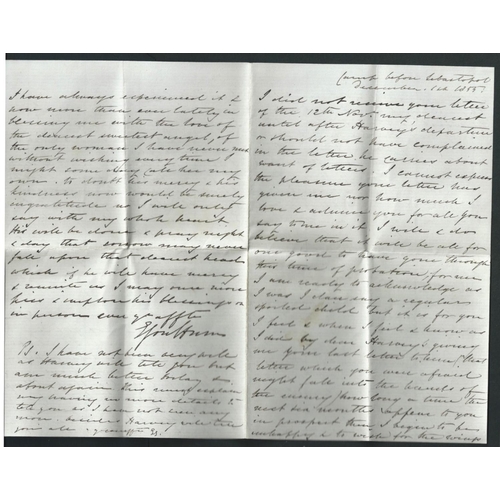 Camp before Sebastopol
December 1st 1855
I did not receive your letter
of the 12th Nov my dearest
until after Harvey's departure
or should not have complained
in the letter he carries about
want of letters. I cannot express
the pleasure your letter has
given me nor how much I
love & admire you for all you
say to me in it I will & do
believe that it will be all for
our good to have gone through
this time of probation for me
I am ready to acknowledge as
I was I dare say a regular
spoiled child but it is for you
I feel & when I feel & know as
I do by dear Harvey's giving
me your last letter to him (that
letter which you were afraid
might fall into the hands of
the enemy) how long a time the
next six months appears to you
in prospect then I begin to be
unhappy & to wish for the wings
I have always experienced it &
now more than ever lately in
blessing me with the love of
the dearest sweetest angel of
the only woman I have never met
without wishing every time I
might some day call her my
own. To doubt his mercy & his
kindness now would be surely
ingratitude so I will only
say with my whole heart
His will be done & pray night
& day that sorrow may never
fall upon that dearest head
which if he will have mercy
& unite us I may once more
kiss & implore his blessings on
in person ever yr affte
PS. I have not been very well
as Harvey will tell you but
am much better today &
about again this must explain
my having in more details to
tell you as I have not been
besides Harvey will tell
you all